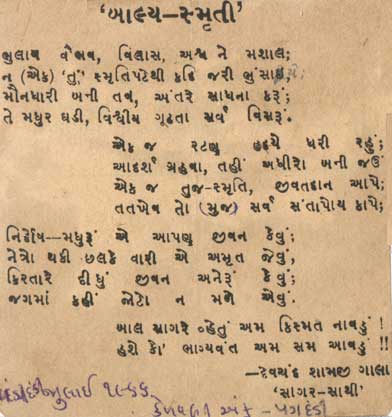 'બાલ્ય–સ્મૃતી'
ભુલાય વૈભવ, વિલાસ, અશ્વ ને મશાલ;
ન (એક) 'તું' સ્મૃતિપટેથી કદિ જરી ભુંસાય;
મૌનધારી બની તવ, અંતરે સાધના કરૂં;
તે મધુર ઘડી, વિશ્વીય ગૂઢતા સર્વ વિસરૂં.
એક જ રટણુ હૃદયે ધરી રહું;
આદર્શ ગ્રહવા, તહીં અધીરો બની જઉં
એક જ તુજ-સ્મૃતિ, જીવતદાન આપે;
તતખેવ તો (મુજ) સર્વ સંતાપોય કાપે;
નિર્દોષ–મધુરૂં એ આપણુ જીવન કેવું;
નેત્રો થકી છલકે વારી એ અમૃત જેવું,
કિરતારે દીધું જીવન અનેરૂં કેવું;
જગમાં કહીં જોટો ન મળે એવું.
બાલ સાગરે વ્હેતું અમ કિસ્મત નાવડું !
હશે કો' ભાગ્યવંત અમ સમ આવડું !!
—દેવચંદ શામજી ગાલા
'સાગર-સાથી'
જુલાઈ ૧૯૬૬
અંક - પગદંડી